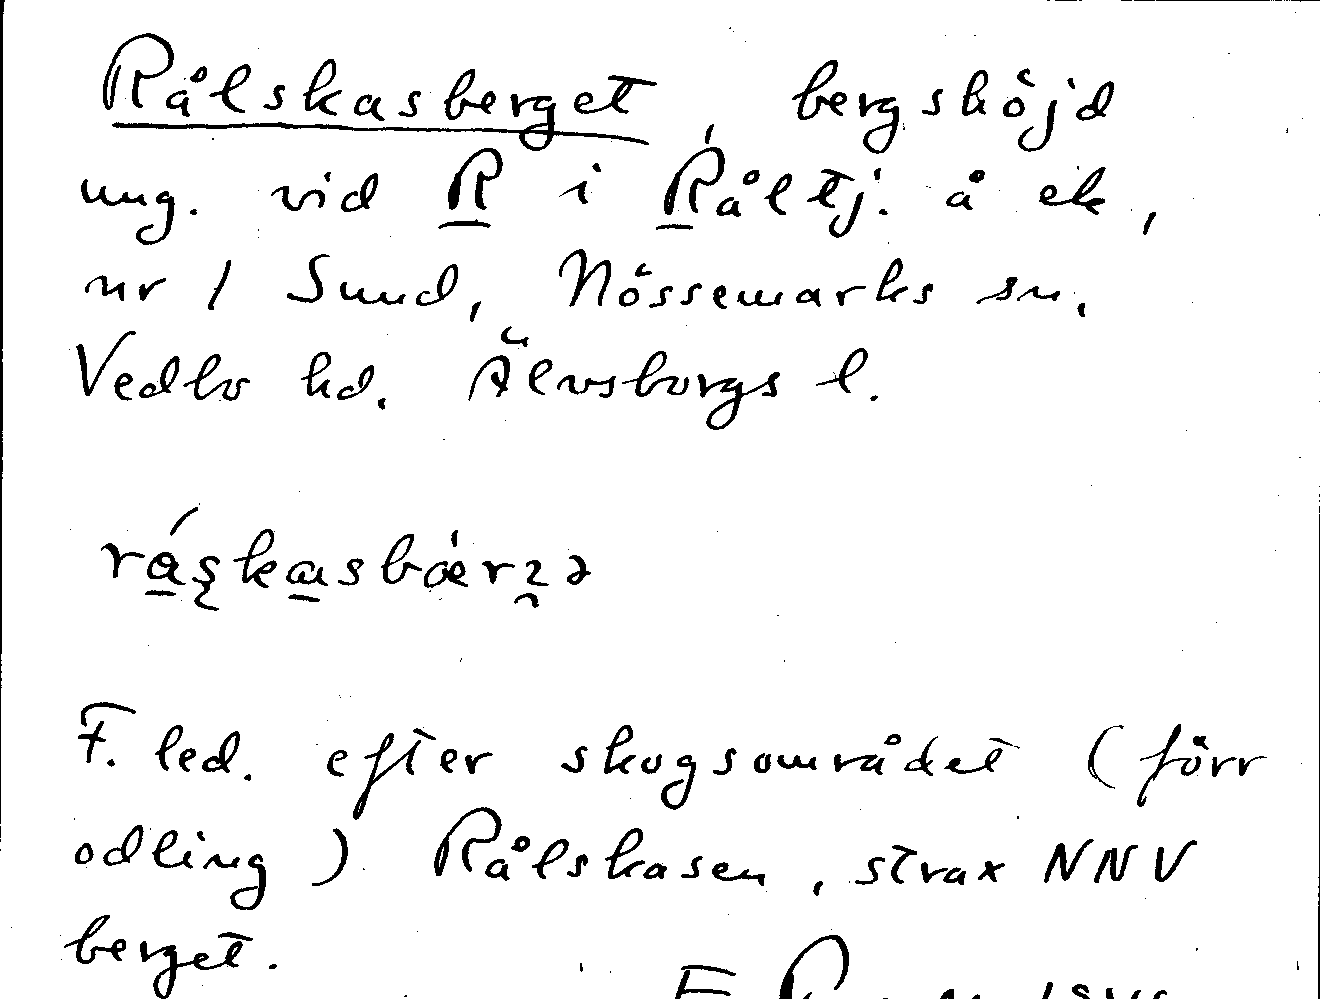 Rålskasberget, bergshöjd
ung. vid R i Råltj. å ek,
nr 1 Sund, Nössemarks sn.
Vedbo hd. Älvsborgs l.
rá̱ʂka̱sbǽrʒ̮ə
F. led. efter skogsområdet (förr
odling) Rålskasen, strax NNV
berget.